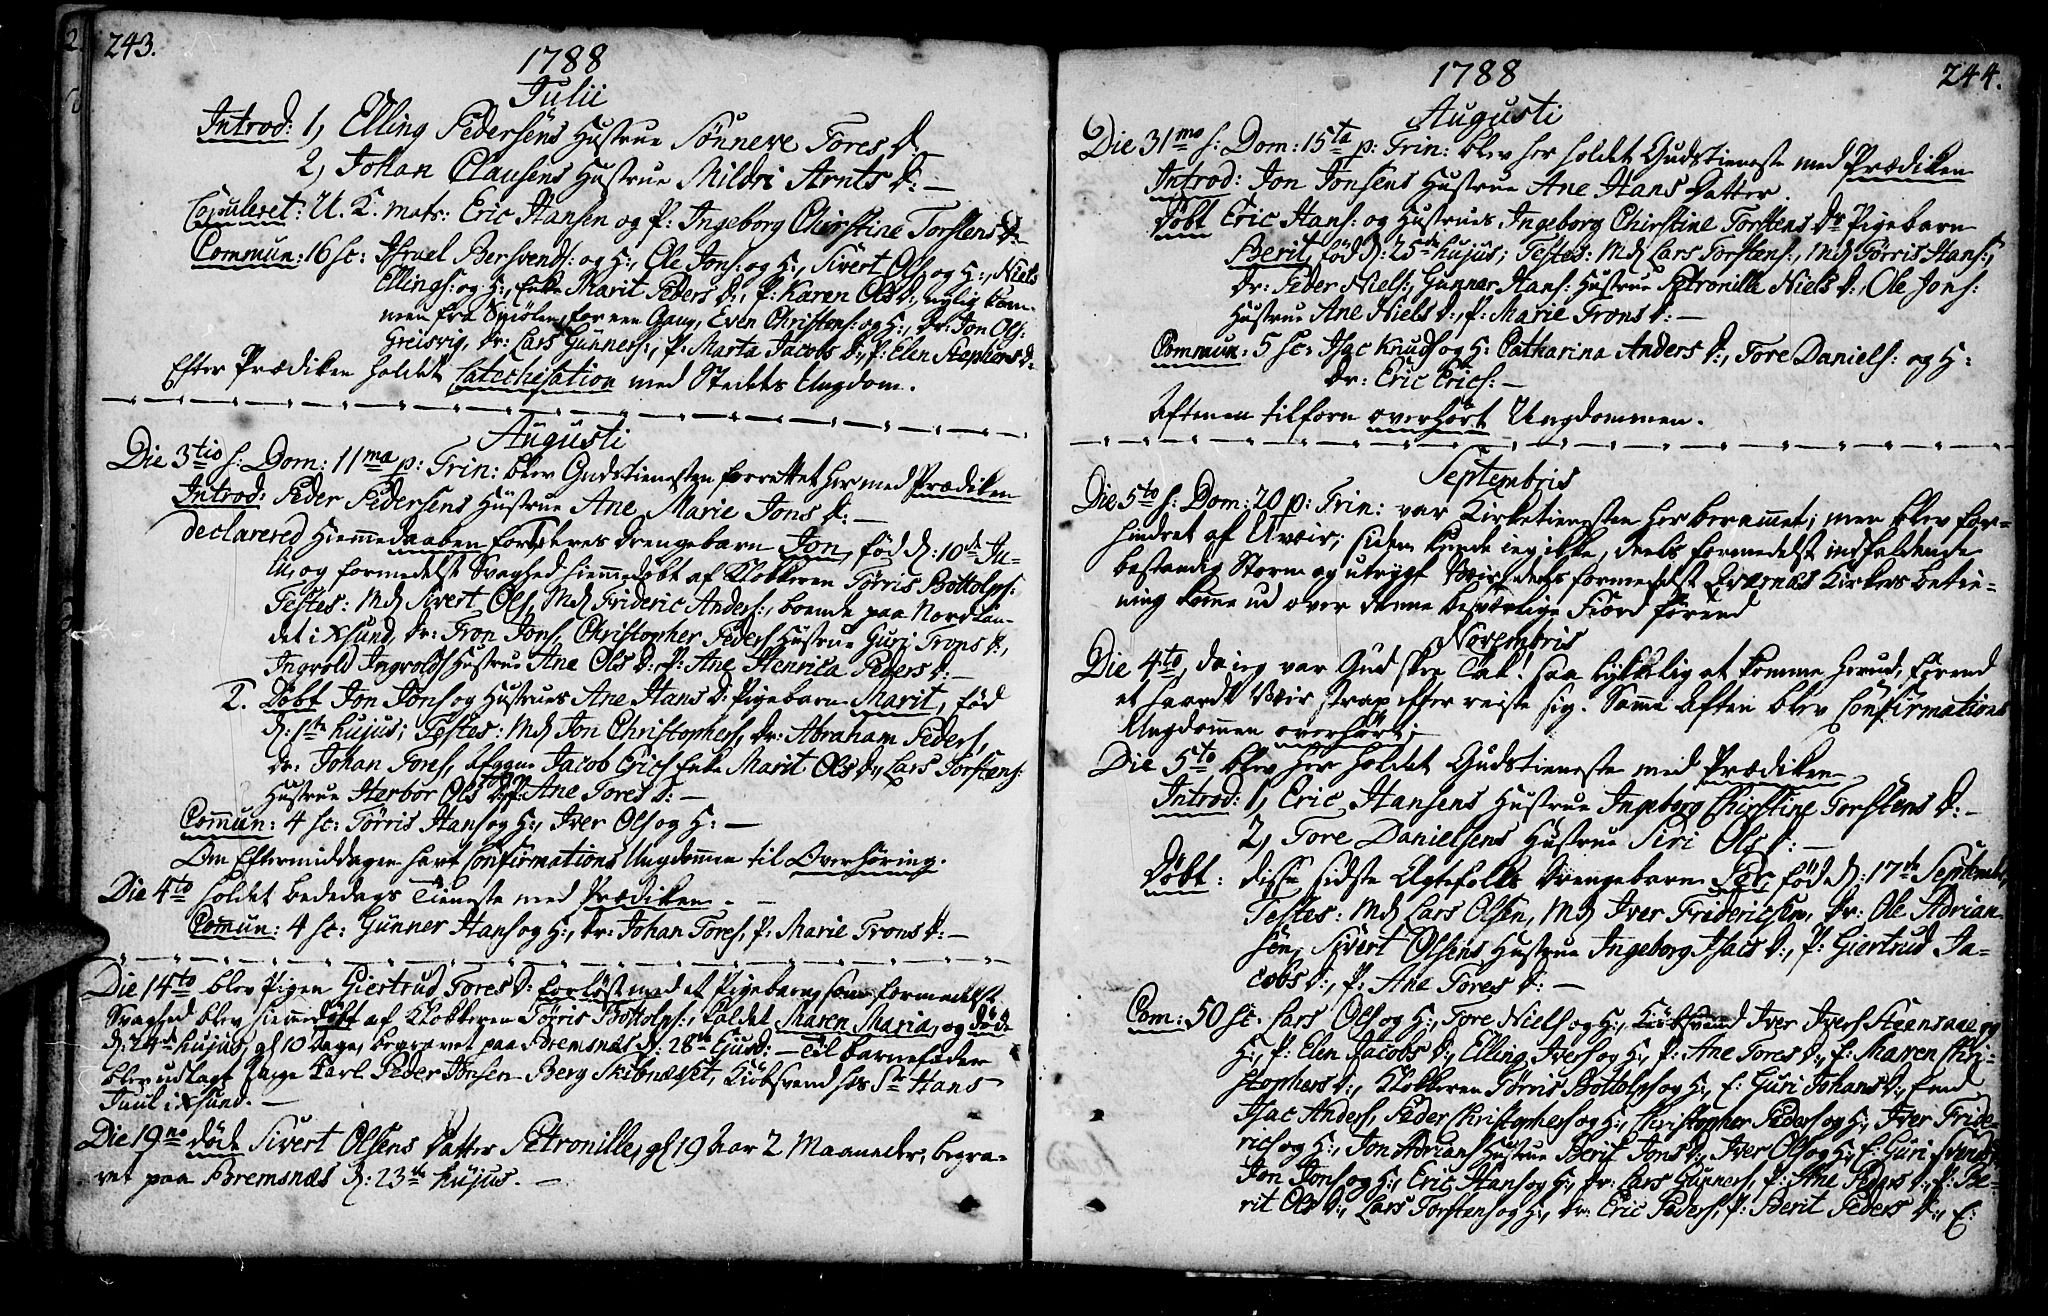 243.
1788
Julii
Introd: 1, Elling Pedersens Hustrue Sönneve Tores D.
2, Johan Clausens Hustrue Mildri Arnts D: —
Copuleret: U. K. mats: Eric Hansen og P: Ingeborg Chirstine Torstens D:
Commun: 16 sc: Israel Bersvends: og H:, Ole Jons: og H:, Sivert Ols: og H:, Niels
Ellings: og H:, Enke Marit Peders D:, P: Karen Ols D:, nylig kom-
men fra Smölen, for een Gang, Even Christens: og H:, Dr: Jon Ols:
Greisvig, Dr: Lars Gunners:, P: Marta Jacobs D:, P: Elen Stephens D:
Efter Prædiken holdet Catechisation med Stedets Ungdom.
Augusti
Die 3tio s: Dom: 11ma p: Trin: blev Gudstienesten forrettet her med Prædiken
Introd: Peder Pedersens Hustrue Ane Marie Jons D: —
declarered Hiemmedaaben for deres Drengebarn Jon, föd d: 10de Ju-
lii, og formedelst Svaghed hiemmedöbt af Klokkeren Törris Bottolps:
Testes: Md Sivert Ols, Md Frideric Anders:, boende paa Nordlan-
det i Xsund, Dr: Tron Jons, Christopher Peders Hustrue Guri Trons D:,
Ingvold Ingvolds Hustrue Ane Ols D: P: Ane Henrica Peders D: —
2. Döbt Jon Jons og Hustrues Ane Hans D: Pigebarn Marit, föd
d: 1ste hujus; Testes: Md Jon Christophers, Dr: Abraham Peders,
Dr: Johan Tores, Afgagne Jacob Erics Enke Marit Ols D:, Lars Torstens:
Hustrue Herbor Ols D: P: Ane Tores D: —
Commun: 4 sc: Törris Hans og H:, Iver Ols og H: —
Om Eftermiddagen havt Confirmations Ungdommen til Overhöring.
Die 4to holdet Bededags Tieneste med Prædiken. —
Commun: 4 sc: Gunner Hans og H:, Dr: Johan Tores, P: Marie Trons D: —
Die 14to blev Pigen Giertrud Tores D: forlöst med et Pigebarn, som formedelst
Svaghed blev hiemmedöbt af Klokkeren Törris Bottolps:, kaldet Maren Maria, og döde
d: 24de hujus, gl 10 Dage, begravet paa Bremsnæs d: 28de Ejusd: — Til Barnefader
blev udlagt Unge Karl Peder Jonsen Berg Skibnæset, Kiöbsvend hos Sr Hans
Juul i Xsund. —
Die 19no döde Sivert Olsens Datter Petronille, gl 19 Aar 2 Maaneder, begra-
vet paa Bremsnæs d: 23de hujus. —
244.
1788
Augusti
Die 31mo s: Dom: 15ta p: Trin: blev her holdet Gudstieneste med Prædiken
Introd: Jon Jonsens Hustrue Ane Hans Datter.
Döbt Eric Hans: og Hustrues Ingeborg Chirstine Torstens Dr Pigebarn
Berit, föd d: 25de hujus; Testes: Md Lars Torstens:, Md Törris Hans:,
Dr: Peder Niels:, Gunner Hans: Hustrue Petronille Niels D:, Ole Jons:
Hustrue Ane Niels D:, P: Marie Trons D: —
Commun: 5 sc: Isac Knuds og H: Catharina Anders D:, Tore Daniels: og H:
Dr: Eric Erics: —
Aftenen tilforn overhört Ungdommen.
Septembris
Die 5to s: Dom: 20 p: Trin: var Kirketienesten her berammet; men blev for-
hindret af Uveir; siden kunde ieg ikke, deels formedelst indfaldende
bestandig Storm og utrygt Veir, deels formedelst Qvernæs Kirkes betie-
ning komme ud over denne besværlige Fiord förend
Novembris
Die 4to, da ieg var Gud skee Tak! saa lykkelig at komme herud, förend
et haardt Veir strax efter reiste sig. Samme Aften blev Confirmations
Ungdommen overhört;
Die 5to blev her holdet Gudstieneste med Prædiken
Introd: 1, Eric Hansens Hustrue Ingeborg Chirstine Torstens D: —
2, Tore Danielsens Hustrue Siri Ols D: —
Döbt: disse sidste Ægtefolks Drengebarn Per, föd d: 17de Septembr,
Testes: Md Lars Olsen, Md Iver Fridericsen, Dr: Ole Adrian-
sen, Sivert Olsens Hustrue Ingeborg Isacs D:, P: Giertrud Ja-
cobs D:, P: Ane Tores D: —
Com: 50 sc: Lars Ols og H:, Tore Niels og H:, Kiöbsvend Iver Ivers Steensaae og
H:, P: Elen Jacobs D:, Elling Ivers og H:, P: Ane Tores D:, P: Maren Chri-
stophers D:, Klokkeren Törris Bottolps og H:, E: Guri Johans D:, Enkd
Isac Anders, Peder Christophers og H:, Christopher Peders og H:, Iver Fride-
rics og H:, Jon Adrians Hustrue Berit Jons D:, Iver Ols og H:, E: Guri
Jon Jons og H:, Eric Hans og H:, Dr: Lars Gunners, P: Ane Peders D:, P: Be-
rit Ols D:, Lars Torstens og H:, Dr: Eric Peders, P: Berit Peders D:, E: